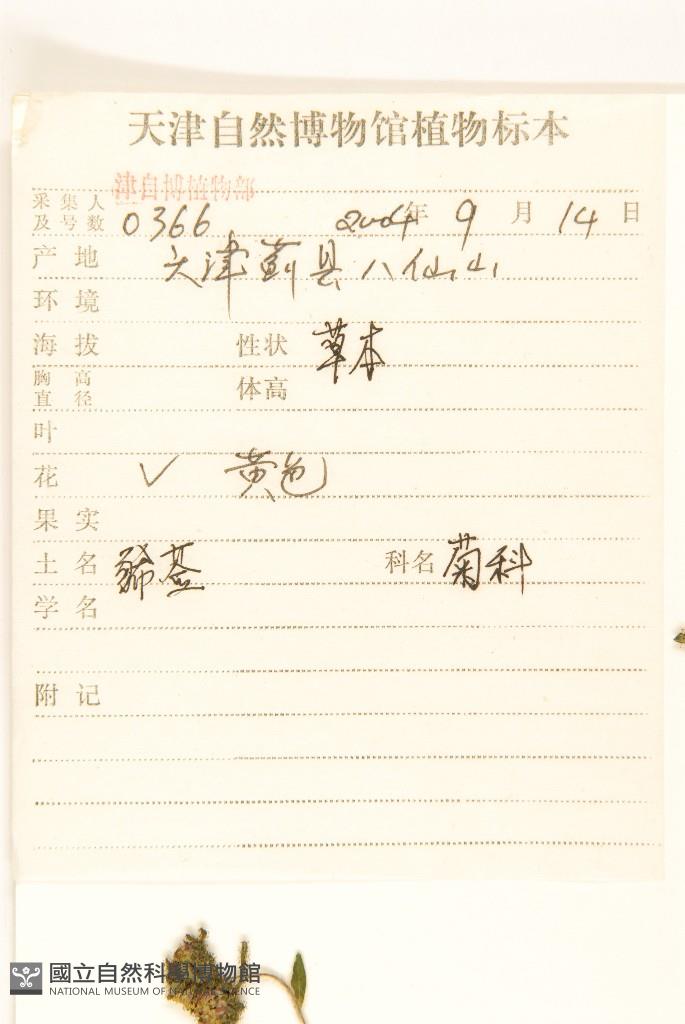 天津自然博物馆植物标本
津自博植物部
采集人及号数 0366 2004年 9 月 14 日
产地 天津蓟县八仙山
环境
海拔 性状 草本
胸高直径 体高
叶
花 ✓ 黄色
果实
土名 豨莶 科名 菊科
学名
附记
國立自然科學博物館
NATIONAL MUSEUM OF NATURAL SCIENCE